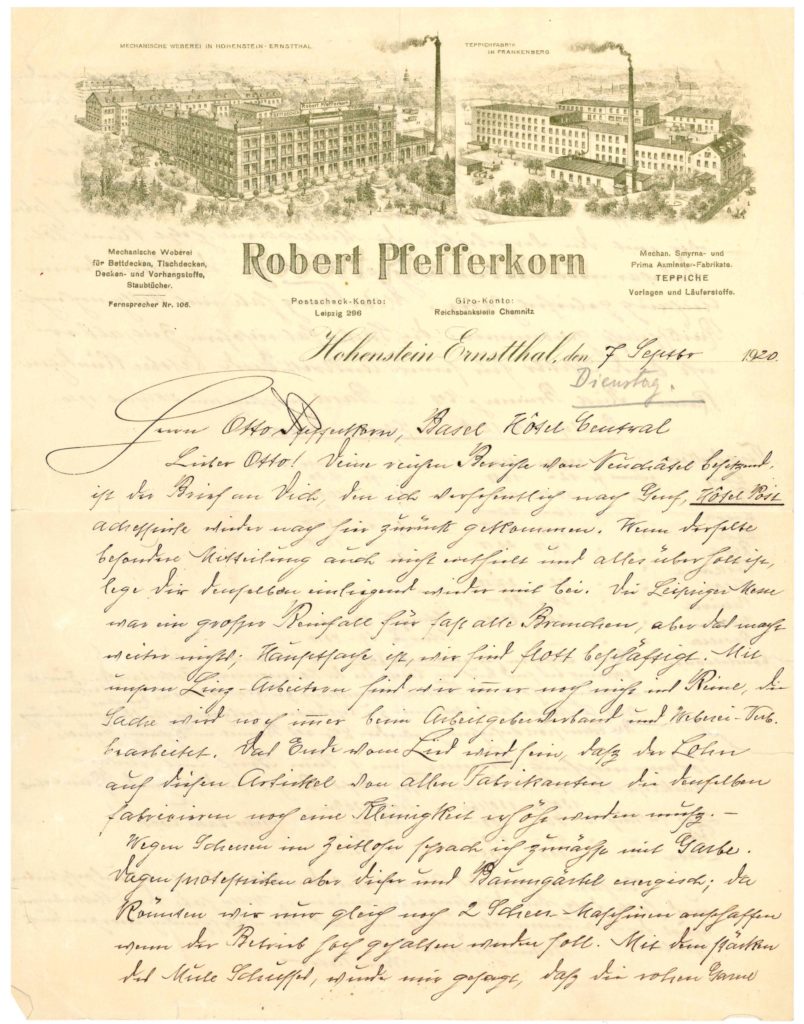 MECHANISCHE WEBEREI IN HOHENSTEIN-ERNSTTHAL
TEPPICHFABRIK
IN FRANKENBERG
Robert Pfefferkorn
Mechanische Weberei
für Bettdecken, Tischdecken,
Decken- und Vorhangstoffe,
Staubtücher.
Fernsprecher Nr. 106.
Robert Pfefferkorn
Mechan. Smyrna- und
Prima Axminster-Fabrikate.
TEPPICHE
Vorlagen und Läuferstoffe.
Postscheck-Konto:
Leipzig 296
Giro-Konto:
Reichsbankstelle Chemnitz
Hohenstein-Ernstthal, den 7 Septbr 1920.
Dienstag.
Herrn Otto Pfefferkorn, Basel Hôtel Central
Lieber Otto! Deine reichen Berichte von Neuchâtel besitzend,
ist der Brief an Dich, den ich versehentlich nach Genf, Hôtel Post
adressirte wieder nach hier zurück gekommen. Wenn derselbe
besondere Mitteilung auch nicht enthielt und alles überholt ist,
lege Dir denselben einliegend wieder mit bei. Die Leipziger Messe
war ein grosser Reinfall für fast alle Branchen, aber das macht
weiter nichts; Hauptsache ist, wir sind flott beschäftigt. Mit
unsern Arbeitern sind wir immer noch nicht ins Reine, die
Sache wird noch immer beim Arbeitgeberverband und Weberei-Verb.
bearbeitet. Das Ende vom Lied wird sein, daß der Lohn
auf diesen Artickel von allen Fabrikanten die denselben
fabricieren noch eine Kleinigkeit erhöht werden muß. —
Wegen Scheren im Zeitlohn sprach ich zunächst mit Garbe.
Dagen protestirten aber dieser und Baumgärtel energisch; da
könnten wir nur gleich noch 2 Scheer-Maschinen anschaffen
wenn der Betrieb hoch gehalten werden soll. Mit dem stärken
des Mule Schusses, wurde mir gesagt, daß die rohen Garne